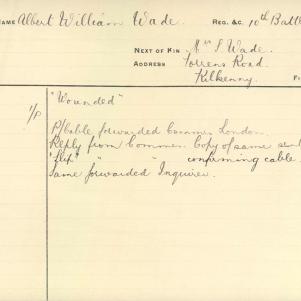 NAME Albert William Wade. REG. &C. 10th Battn
NEXT OF KIN Mrs S. Wade.
ADDRESS Torrens Road.
Kilkenny.
"Wounded"
P/Cable forwarded Commr. London.
Reply from Commr. Copy of same sent
"Slip" " " confirming cable.
Same forwarded Inquirer.